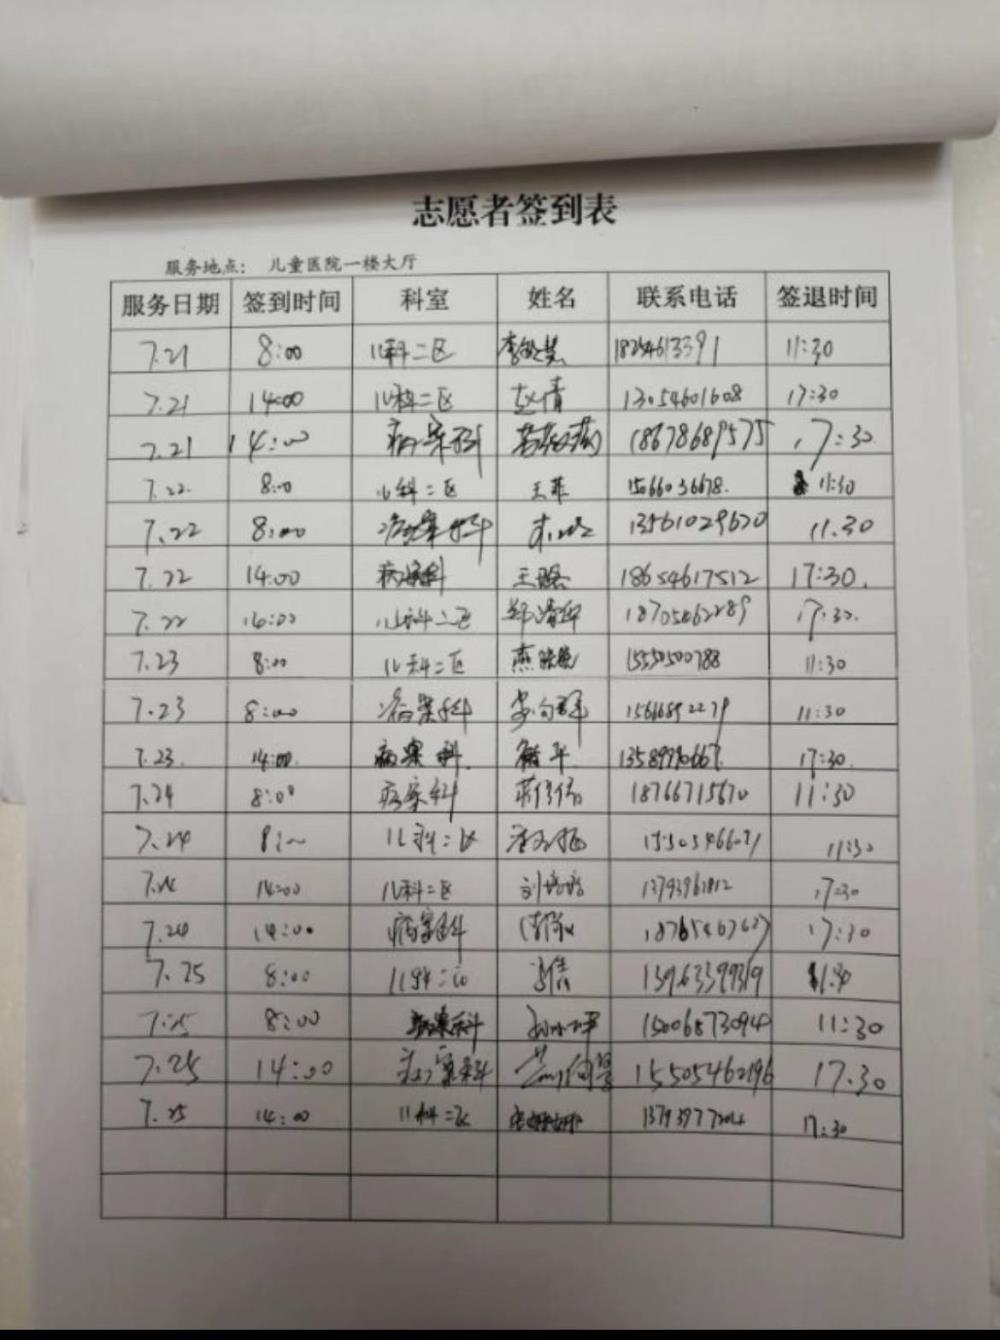 志愿者签到表
服务地点： 儿童医院一楼大厅
服务日期 签到时间 科室 姓名 联系电话 签退时间
7.21 8:00 儿科二区 18254613391 11:30
7.21 14:00 儿科二区 赵倩 13054601608 17:30
7.21 14:00 病案科 18678689575 17:30
7.22 8:00 儿科二区 王菲 15066036678. 11:30
7.22 8:00 病案科 13561029620 11.30
7.22 14:00 病案科 王璐 18654617512 17:30.
7.22 14:00 儿科二区 18705462289 17:30.
7.23 8:00 儿科二区 15550500788 11:30
7.23 8:00 病案科 李向群 15666892279 11:30
7.23. 14:00. 病案科. 17:30.
7.24 8:00 病案科 蒋倩倩 18766715670 11:30
7.24 儿科二区 11:30
7.24 14:00 儿科二区 刘培培 17:30
7.24 14:00 病案科 17:30
7.25 8:00 儿科二区
7.25 8:00 病案科 15006873094 11:30
7.25 14:00 病案科 15505462196 17.30
7.25 14:00 儿科二区 17:30